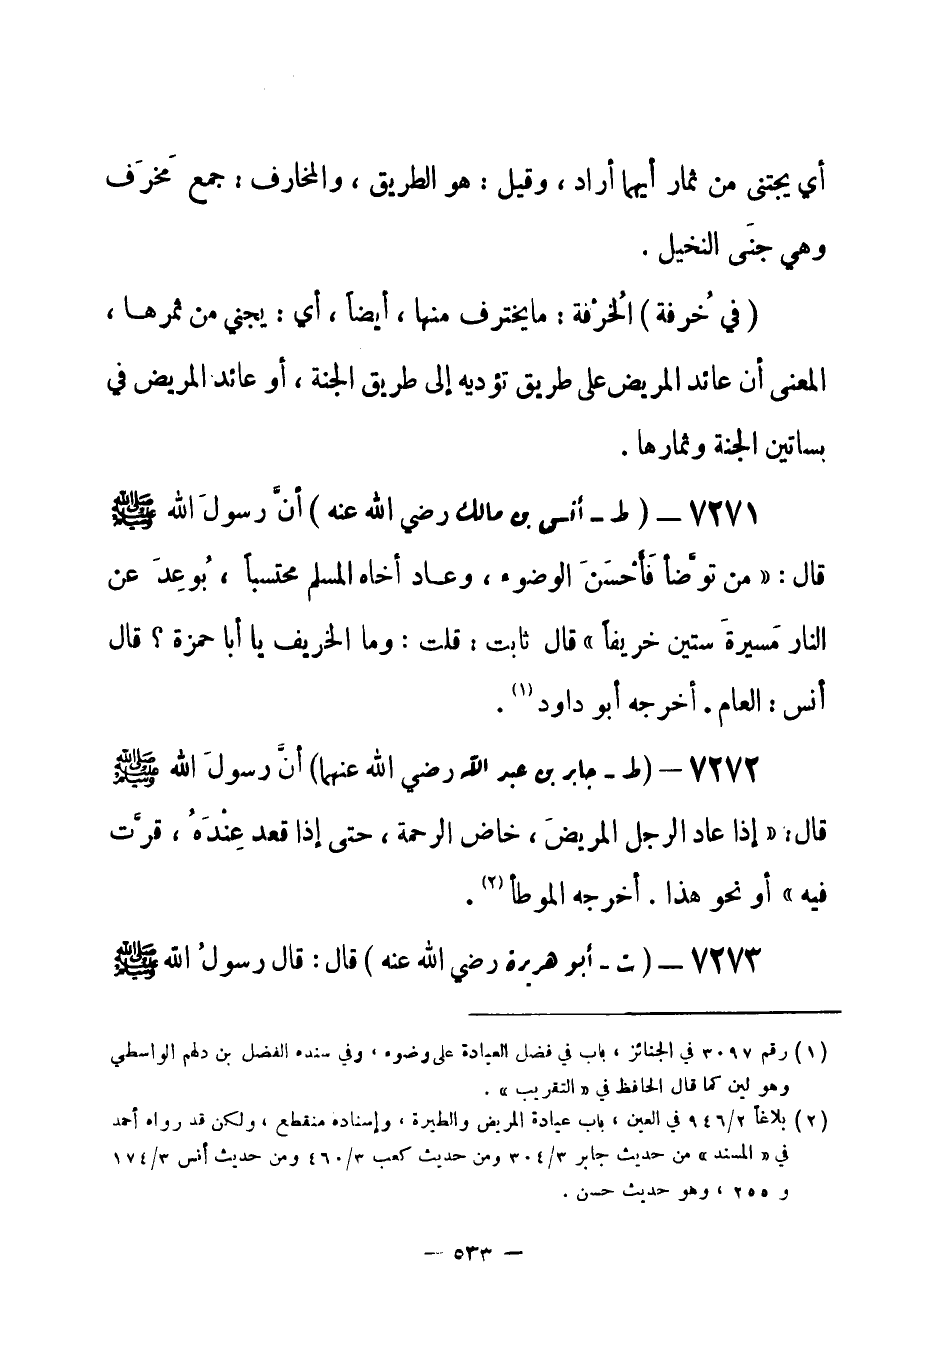 أي يجتنى من ثمار أيها أراد ، وقيل : هو الطريق ، والمخارف : جمع مَخرَف
وهي جنَى النخيل .
( في خُرفة ) الخُرْفة : مايخترف منها ، أيضاً ، أي : يجني من ثمرهـا ،
المعنى أن عائد المريض على طريق تؤديه إلى طريق الجنة ، أو عائد المريض في
بساتين الجنة وثمارها .
٧٢٧١ – ( ط - أنس بن مالك رضي الله عنه ) أنَّ رسولَ الله ﷺ
قال : « من توضَّأ فَأَحْسَنَ الوضوء ، وعـاد أخاه المسلم محتسباً ، بُوعِدَ عن
النار مَسيرةَ ستين خريفاً » قال ثابت : قلت : وما الخريف يا أبا حمزة ؟ قال
أنس : العام . أخرجه أبو داود (١) .
٧٢٧٢ – (ط - جابر بن عبد الله رضي الله عنهما) أنَّ رسولَ الله ﷺ
قال : « إذا عاد الرجل المريضَ ، خاض الرحمة ، حتى إذا قعد عِنْدَهُ ، قرَّت
فيه » أو نحو هذا . أخرجه الموطأ (٢) .
٧٢٧٣ – ( ت - أبو هريرة رضي الله عنه ) قال : قال رسولُ الله ﷺ
(١) رقم ٣٠٩٧ في الجنائز ، باب في فضل العيادة على وضوء ، وفي سنده الفضل بن دلهم الواسطي
وهو لين كما قال الحافظ في « التقريب » .
(٢) بلاغاً ٩٤٦/٢ في العين ، باب عيادة المريض والطيرة ، وإسناده منقطع ، ولكن قد رواه أحمد
في « المسند » من حديث جابر ٣٠٤/٣ ومن حديث كعب ٤٦٠/٣ ومن حديث أنس ١٧٤/٣
و ٢٥٥ ، وهو حديث حسن .
– ٥٣٣ –